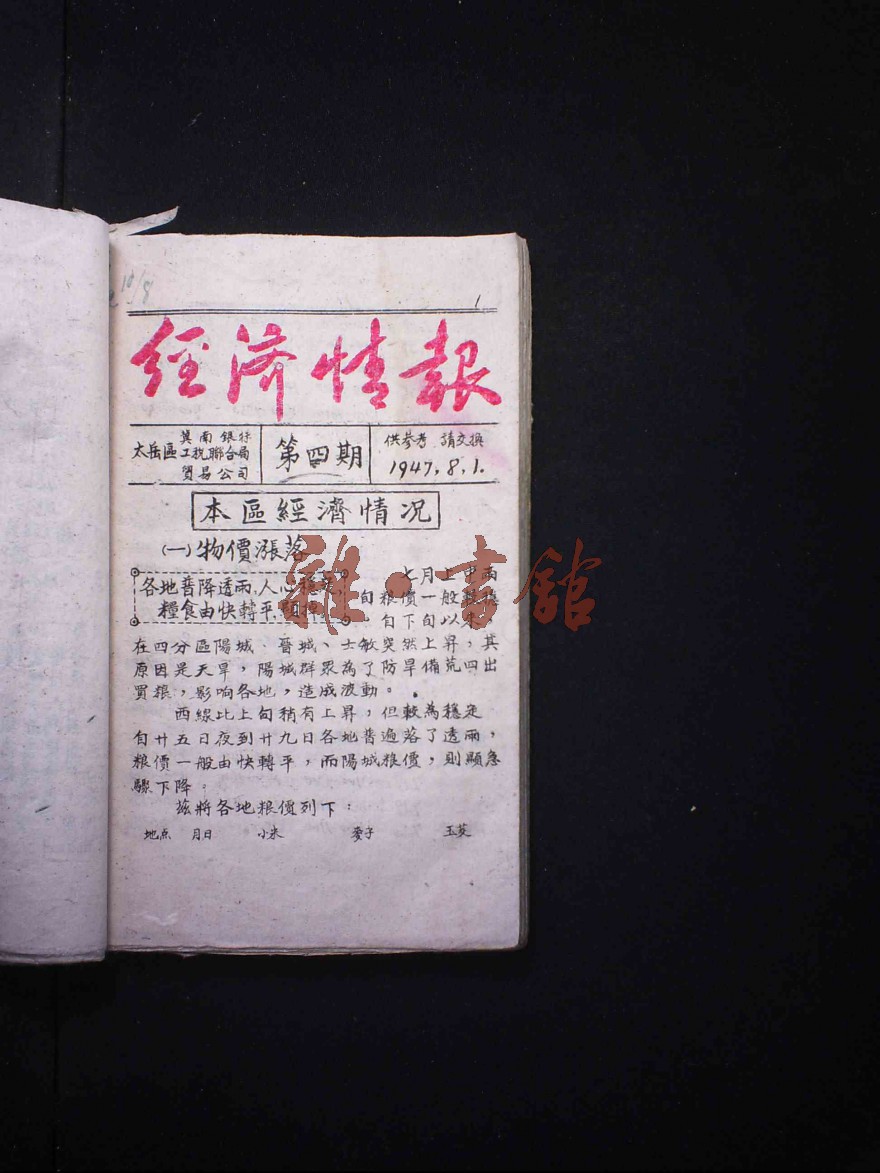 10/8
1
經濟情報
太岳區
冀南銀行
工税聯合局
貿易公司
第四期
供參考 請交换
1947.8.1.
本區經濟情况
(一)物價漲落
各地普降透雨,人心穩
糧食由快轉平
七月上中兩
旬粮價一般
旬下旬以來
在四分區陽城、晉城、士敏突然上昇,其
原因是天旱,陽城群眾為了防旱備荒四出
買粮,影响各地,造成波動。
西線比上旬稍有上昇,但較為穩定
自廿五日夜到廿九日各地普遍落了透雨,
粮價一般由快轉平,而陽城粮價,則顯急
驟下降。
茲將各地粮價列下:
地点 月日 小米 麥子 玉茭
雜·書館